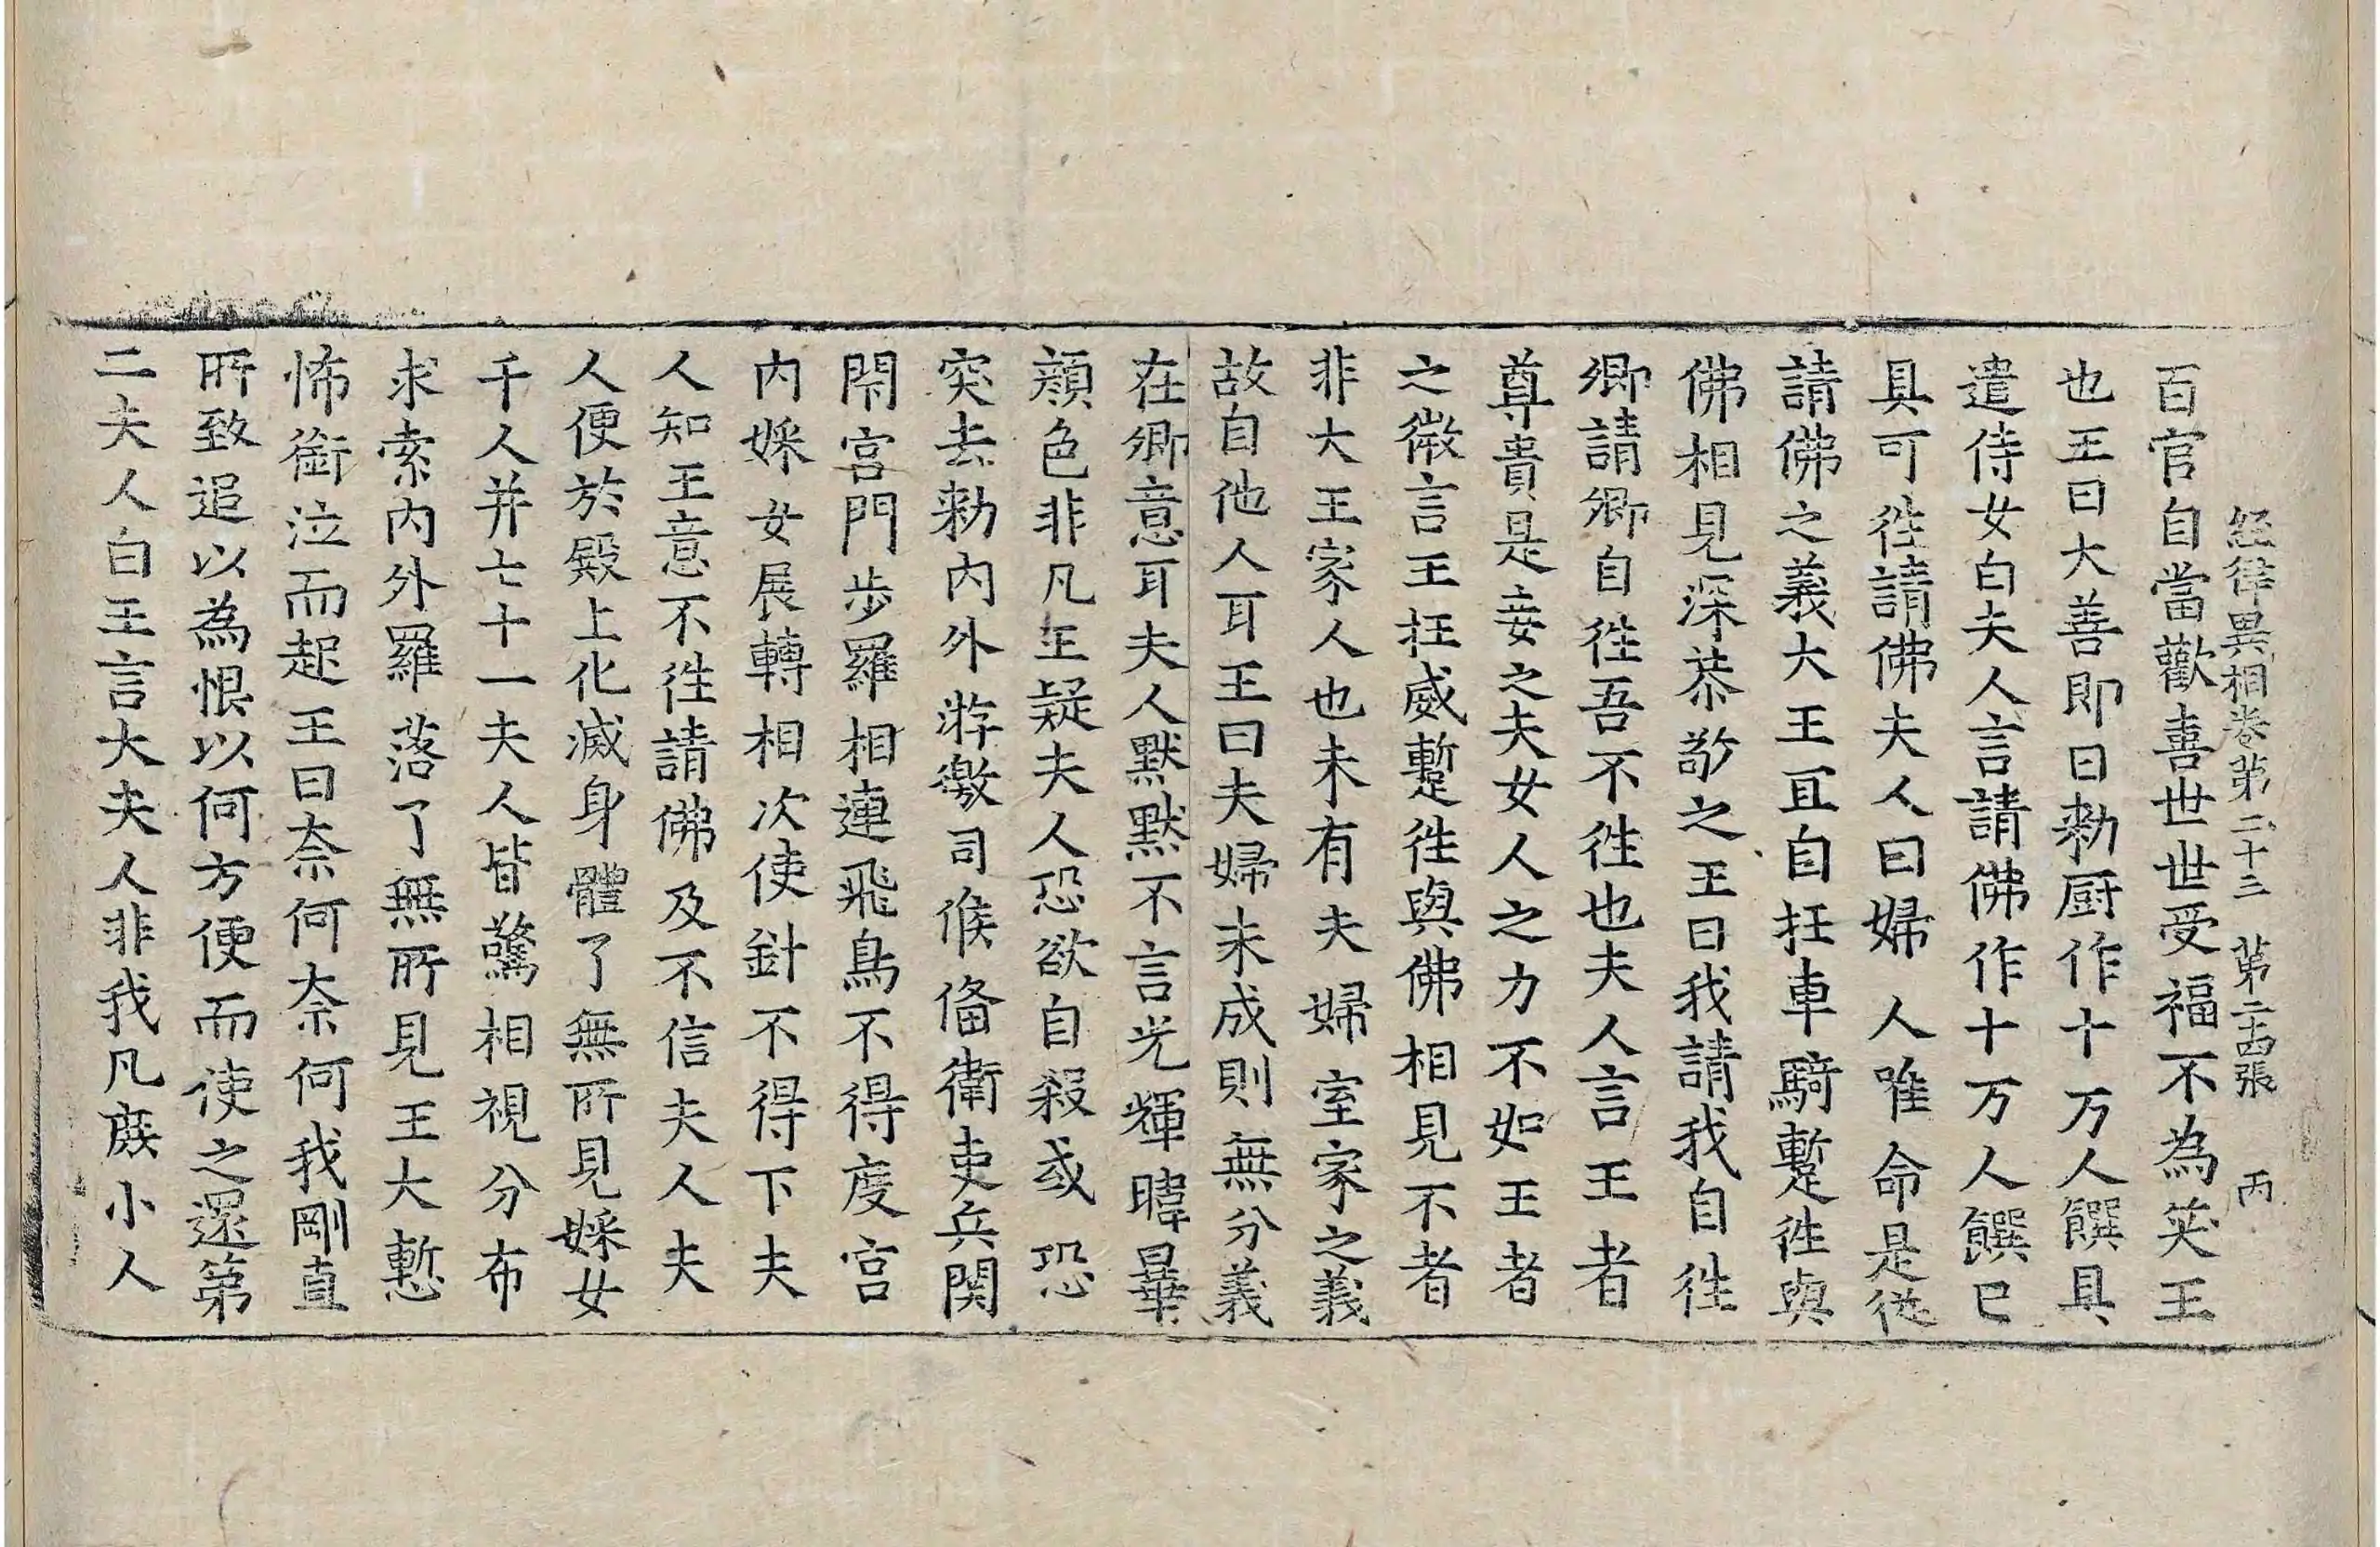 經律異相卷第二十三 第二十四張 丙
百官自當歡喜世世受福不為笑王
也王曰大善即日勑厨作十万人饌具
遣侍女白夫人言請佛作十万人饌已
具可徃請佛夫人曰婦人唯命是從
請佛之義大王冝自抂車騎蹔徃與
佛相見深恭敬之王曰我請我自徃
卿請卿自徃吾不徃也夫人言王者
尊貴是妾之夫女人之力不如王者
之微言王抂威蹔徃與佛相見不者
非大王家人也未有夫婦室家之義
故自他人耳王曰夫婦未成則無分義
在卿意耳夫人默默不言光輝暐曅
顔色非凡王疑夫人恐欲自殺或恐
突去勑内外遊徼司候俻衛吏兵関
閇宮門步羅相連飛鳥不得度宮
内婇女展轉相次使針不得下夫
人知王意不徃請佛及不信夫人夫
人便於殿上化滅身體了無所見婇女
千人并七十一夫人皆驚相視分布
求索内外羅落了無所見王大慙
怖銜泣而起王曰奈何奈何我剛直
所致追以為恨以何方便而使之還第
二夫人白王言大夫人非我凡庻小人